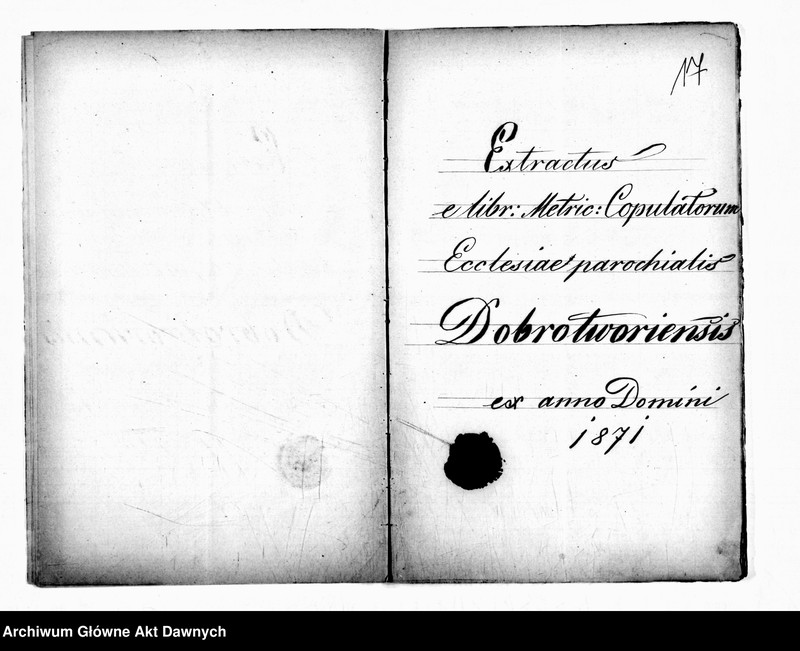 17
Extractus
e libr: Metric: Copulatorum
Ecclesiae parochialis
Dobrotworiensis
ex anno Domini
1871
Archiwum Główne Akt Dawnych